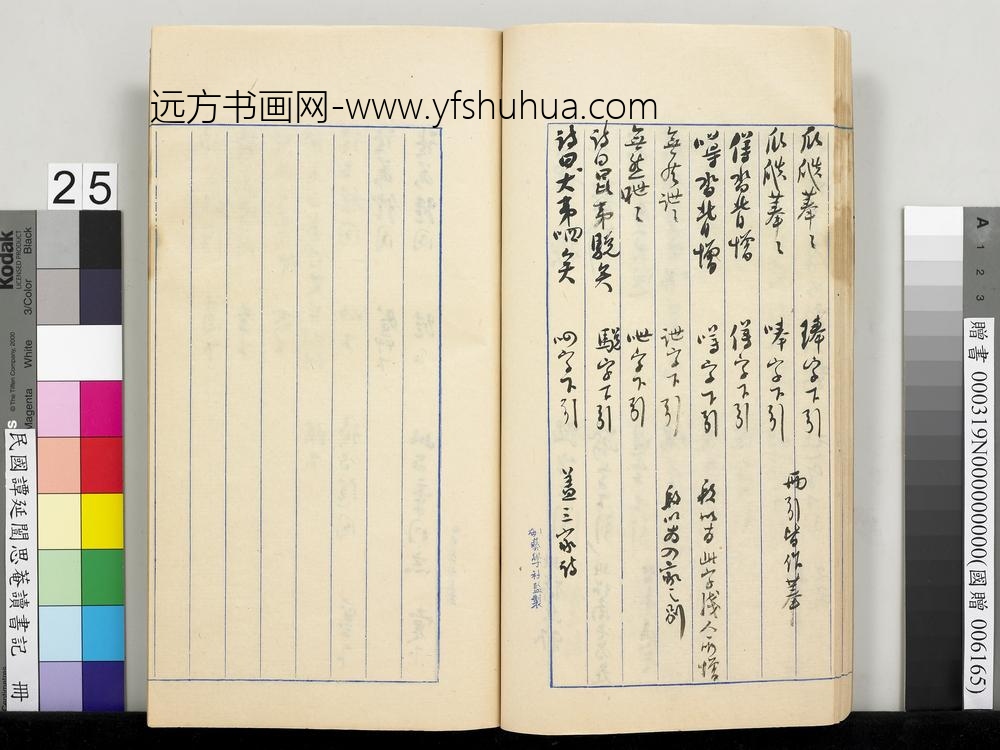 远方书画网-www.yfshuhua.com
瓜瓞菶〻 琫字下引 兩引皆作菶
瓜瓞菶〻 唪字下引
僔沓背憎 僔字下引
噂沓背憎 噂字下引 段以為此字淺人所增
無然詍〻 詍字下引 段以為家之別
無然呭〻 呭字下引
詩曰昆夷駾矣 駾字下引
詩曰犬夷呬矣 呬字下引 蓋三家詩
學社監製
25
Kodak
LICENSED PRODUCT
Black
3/Color
White
Magenta
© The Tiffen Company, 2000
民國譚延闓思菴讀書記 冊
A 1 2 3
贈書 000319N000000000(國贈 006165)